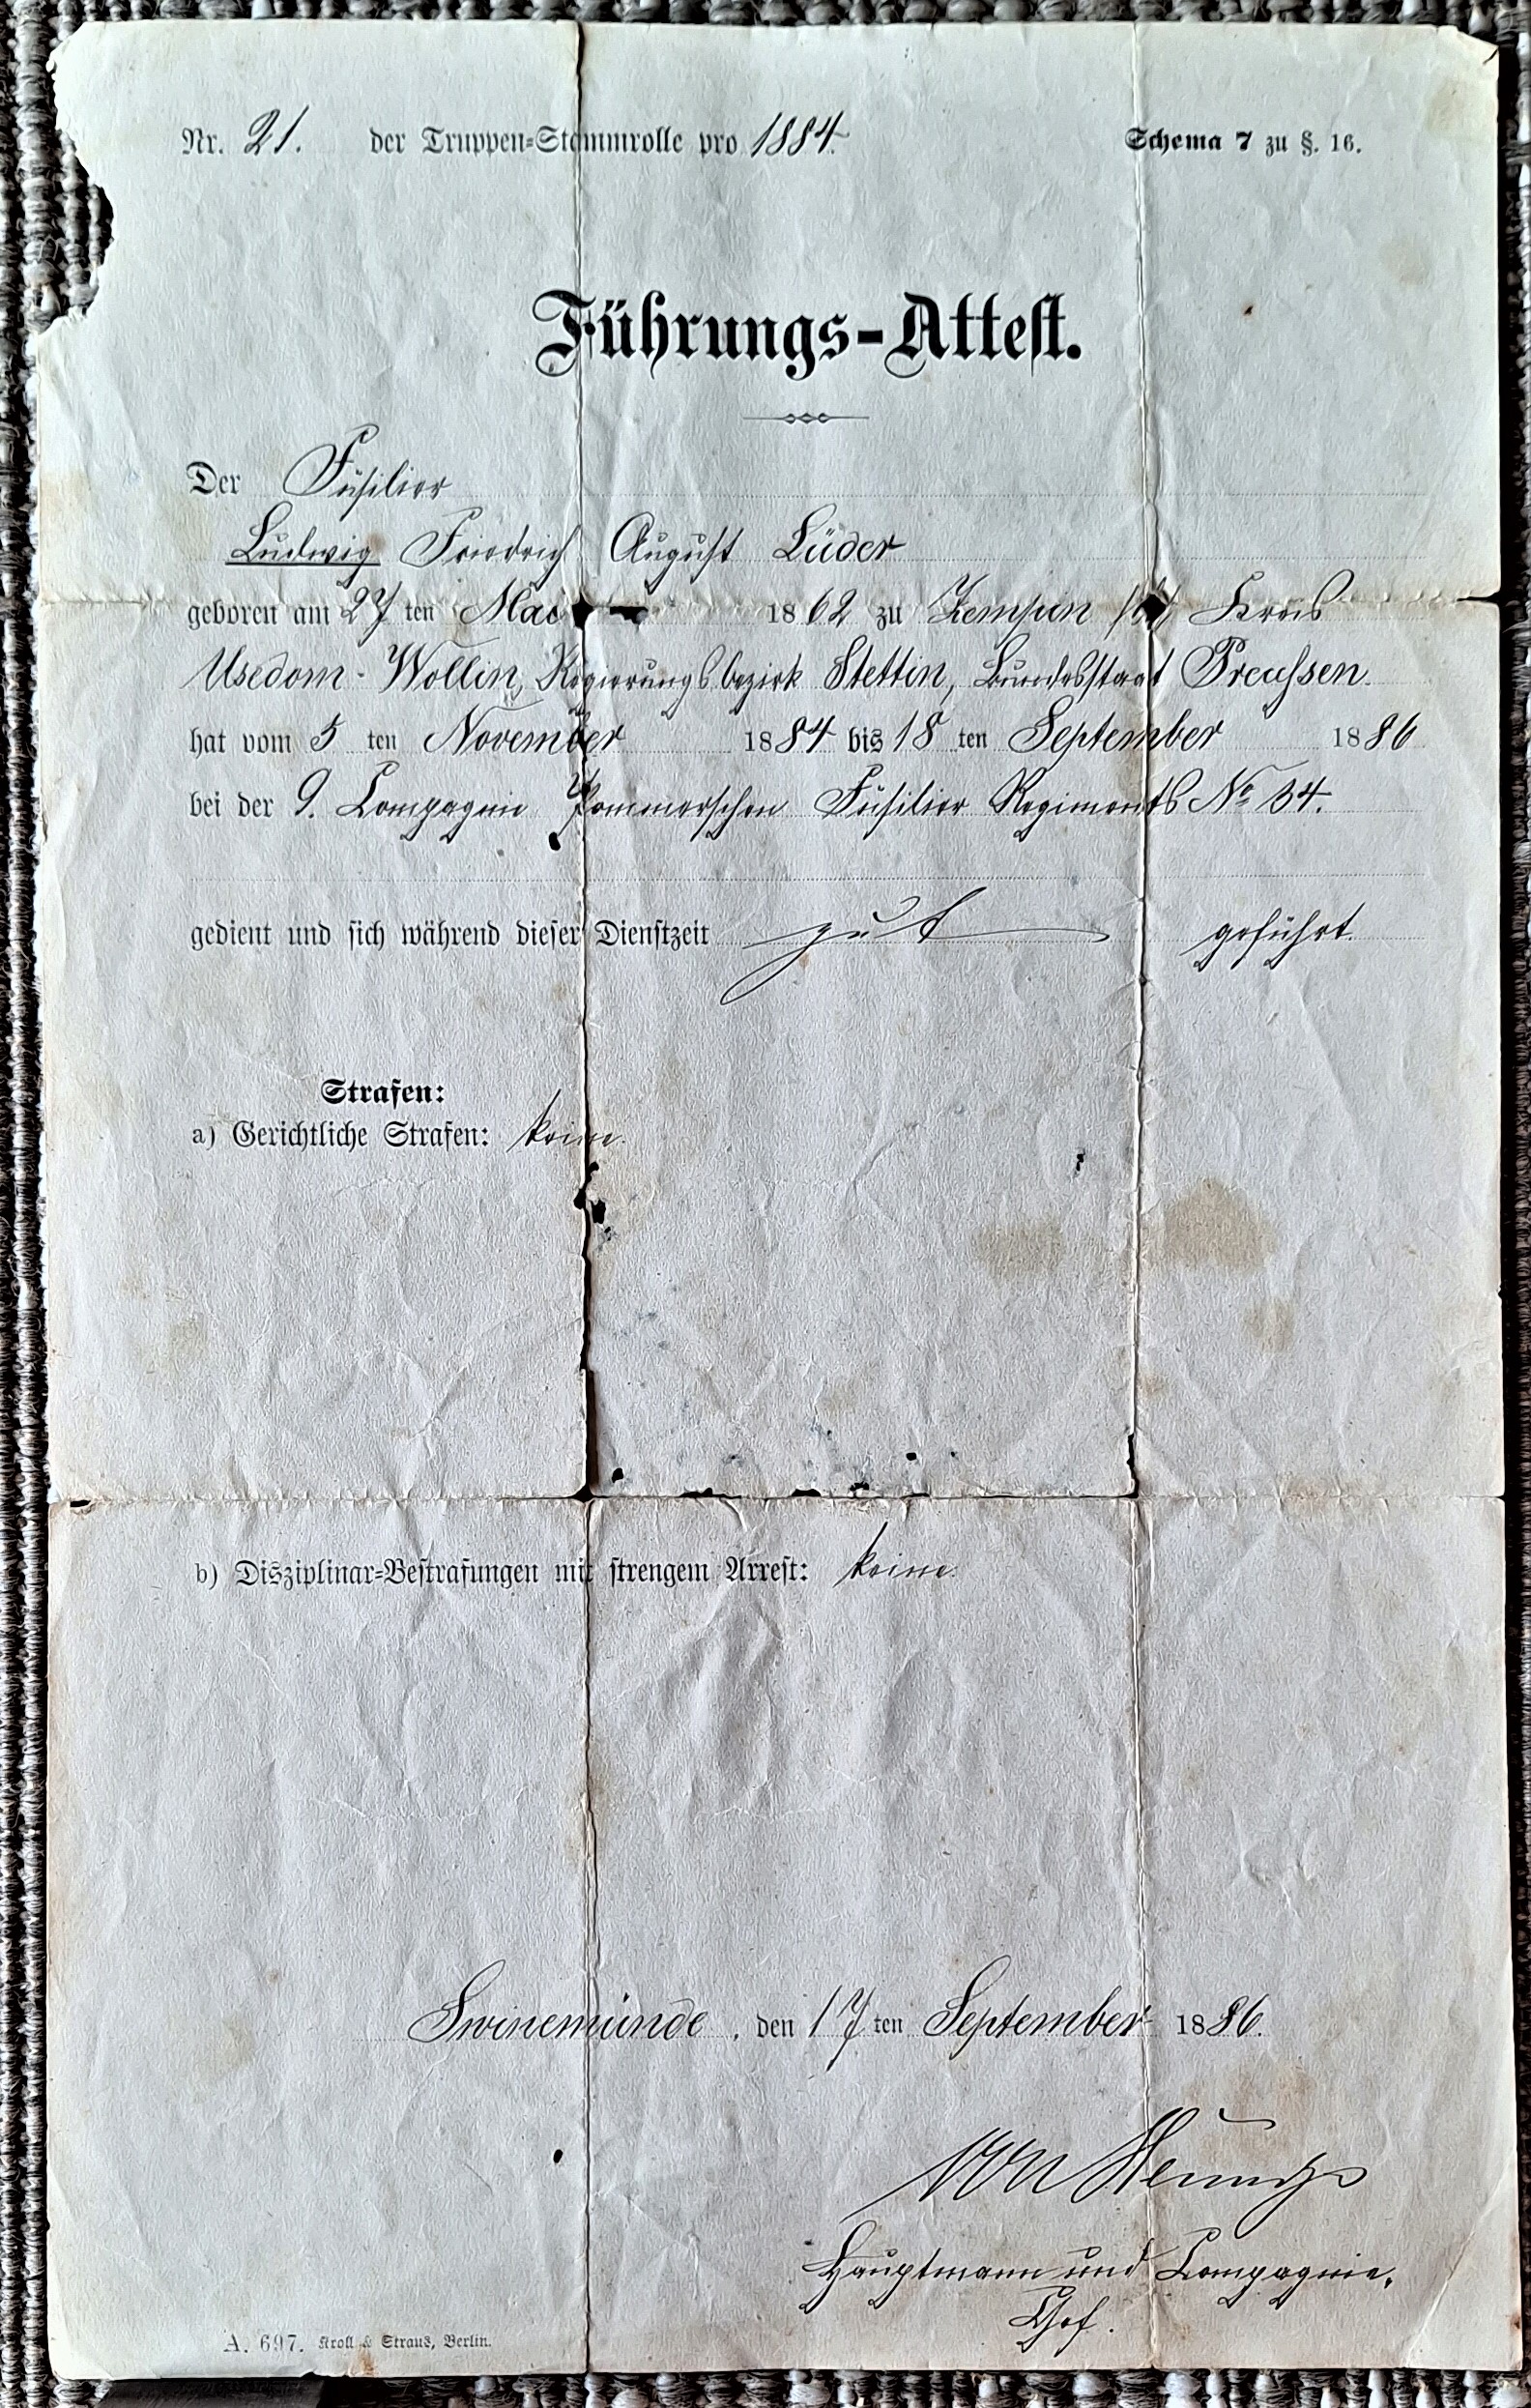 Nr. 21. der Truppen-Stammrolle pro 1884.
Schema 7 zu §. 16.
Führungs-Attest.
Der Füsilier
Ludwig Friedrich August Lüder
geboren am 27 ten Mai 1862 zu Zempin Kreis
Usedom-Wollin, Regierungsbezirk Stettin, Bundesstaat Preussen
hat vom 5 ten November 1884 bis 18 ten September 1886
bei der 9. Compagnie Pommerschen Füsilier Regiments No 34.
gedient und sich während dieser Dienstzeit gut geführt.
Strafen:
a) Gerichtliche Strafen: keine.
b) Disziplinar-Bestrafungen mit strengem Arrest: keine.
Swinemünde, den 17 ten September 1886.
von
Hauptmann und Compagnie-
Chef.
A. 697. Kroll & Straus, Berlin.